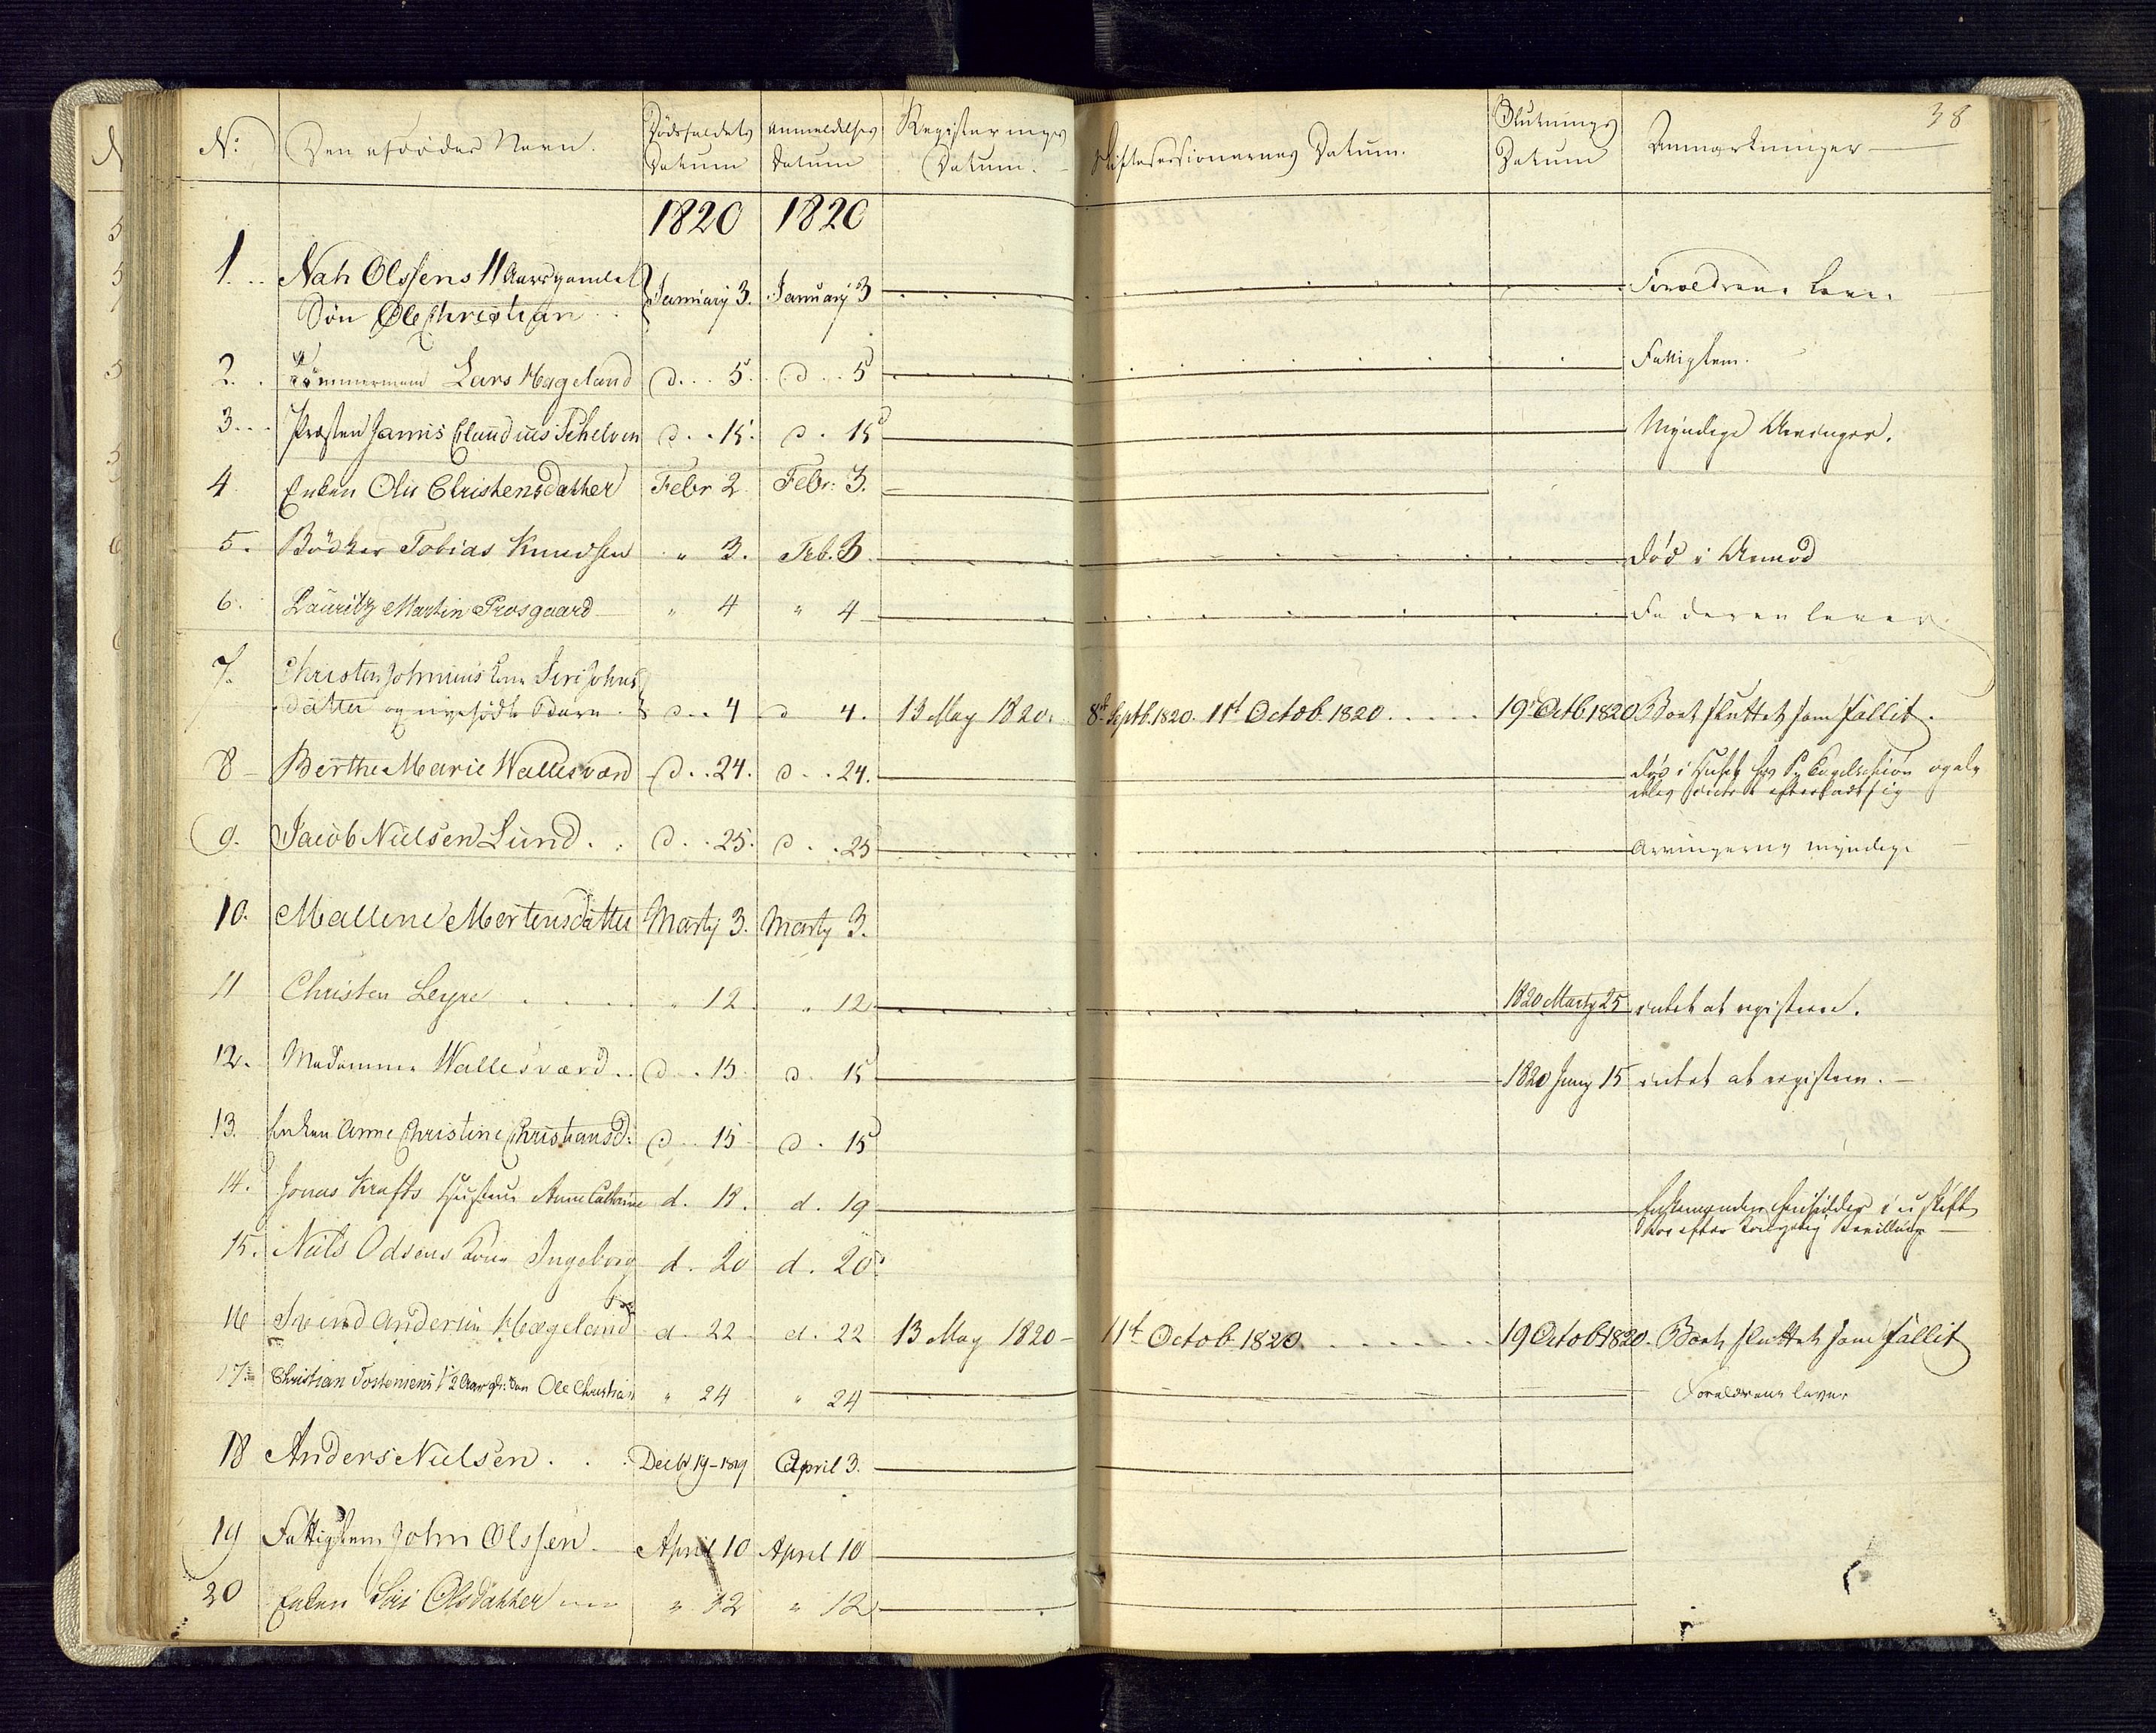 38
No Den afdødes Navn. Dødsfaldets Datum Anmeldelses Datum Registerings Datum. Skiftesessionernes Datum. Slutnings Datum Anmærkninger
1820 1820
1. Nah Olssens 11 Aars gamle
Søn Ole Christian January 3. January 3 Forældrene lever
2. Tømmermand Lars Hageland d. 5. d. 5 Fattiglem.
3. Præsten Claudius Schelven d. 15. d. 15 Myndige Arvinger.
4 Enken Christensdatter Febr 2 Febr: 3.
5. Bödker Tobias Knudsen " 3. Feb. 3. død i Armod
6. Lauritz Martin Prosgaard " 4 " 4 Faderen lever
7. Christen Kone Siri Johns
datter og nyefødte Barn d. 4 d 4. 13 May 1820. 8de Septb. 1820. 11te Octob. 1820. 19 Octb 1820 Boet sluttet som fallit.
8 Berthe Marie Wallesværd d. 24. d. 24. død i Huset hos og
efterladt sig
9. Jacob Nielsen Lund. d. 25. d. 25 Arvingerne myndige
10. Mallene Mortensdatter Martij 3. Martij 3.
11 Christen Leyre " 12 " 12 1820 Marty 25 intet at registrere.
12. Madamme Wallesværd d. 15 d. 15 1820 Juny 15 intet at registrere.
13. Enken Anne Christine Christiansd: d. 15 d. 15
14. Jonas Krafts Hustrue Anne Cathrine d. 18. d. 19 Enkemanden hensidder i uskiftet
Boe efter Kongelig Bevilling
15. Niels Odsens Kone Ingeborg d. 20 d. 20
16 Svend Andersen Hægeland d. 22 d. 22 13 May 1820 11te Octob 1820. 19 Octob 1820. Boet sluttet som fallit
17 Christian Tostensens 1/2 Aar gl: Søn Ole Christian " 24 " 24 Forældrene lever
18 Anders Nielsen. Decbr 19-1819 April 3.
19 Fattiglem John Olssen. April 10 April 10
20 Enken Siri Olsdatter " 12 " 12